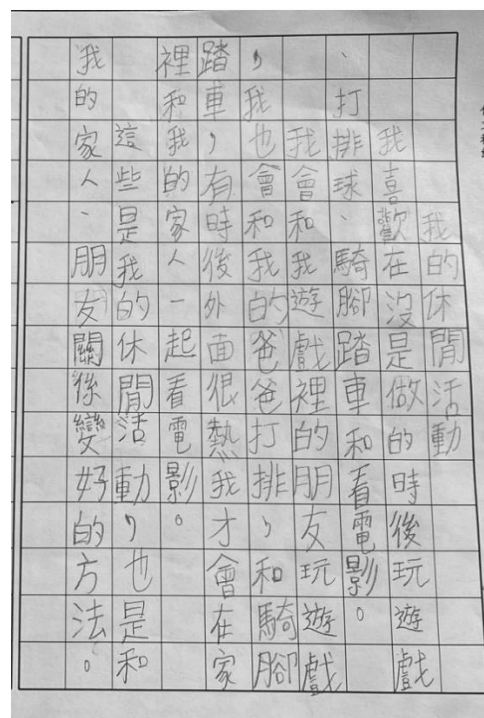 我的休閒活動
我喜歡在沒是做的時後玩遊戲
、打排球、騎腳踏車和看電影。
我會和我遊戲裡的朋友玩遊戲
，我也會和我的爸爸打排，和騎腳
踏車，有時後外面很熱我才會在家
裡和我的家人一起看電影。
這些是我的休閒活動，也是和
我的家人、朋友關係變好的方法。